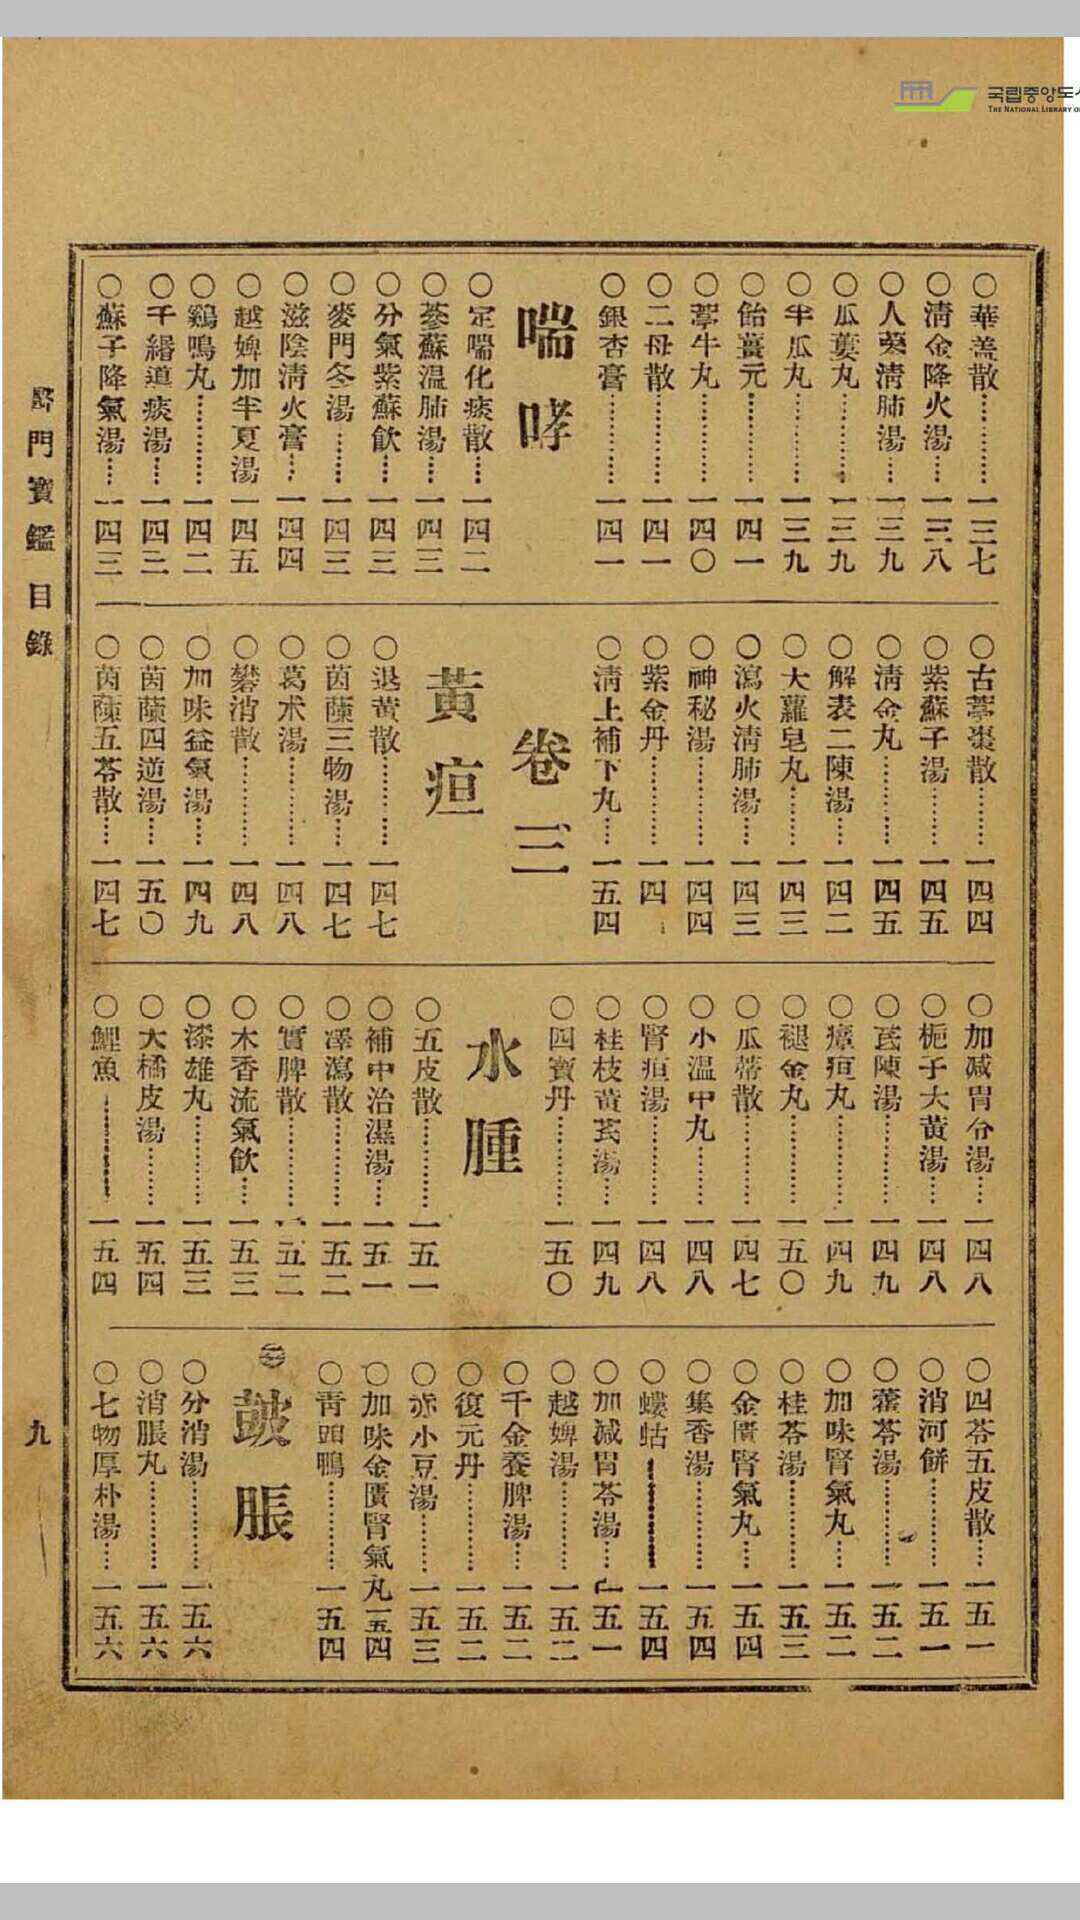 국립중앙도서
THE NATIONAL LIBRARY O
○華盖散………一三七
○淸金降火湯…一三八
○人蔘淸肺湯…一三九
○瓜蔞丸………一三九
○半瓜丸………一三九
○飴薑元………一四一
○葶牛丸………一四〇
○二母散………一四一
○銀杏膏………一四一
喘哮
○定喘化痰散…一四二
○蔘蘇温肺湯…一四三
○分氣紫蘇飮…一四三
○麥門冬湯……一四三
○滋陰淸火膏…一四四
○越婢加半夏湯一四五
○鷄鳴丸………一四二
○千緡道痰湯…一四三
○蘇子降氣湯…一四三
○古葶棗散……一四四
○紫蘇子湯……一四五
○淸金丸………一四五
○解表二陳湯…一四二
○大蘿皂丸……一四三
○瀉火淸肺湯…一四三
○神秘湯………一四四
○紫金丹………一四
○淸上補下丸…一五四
卷三
黃疸
○退黃散………一四七
○茵蔯三物湯…一四七
○葛朮湯………一四八
○礬消散………一四八
○加味益氣湯…一四九
○茵蔯四逆湯…一五〇
○茵蔯五苓散…一四七
○加减胃苓湯…一四八
○梔子大黃湯…一四八
○茋陳湯………一四九
○瘴疸丸………一四九
○褪金丸………一五〇
○瓜蒂散………一四七
○小溫中丸……一四八
○腎疸湯………一四八
○桂枝黃芪湯…一四九
○四寶丹………一五〇
水腫
○五皮散………一五一
○補中治濕湯…一五一
○澤瀉散………一五二
○實脾散………一五二
○木香流氣飮…一五三
○漆雄丸………一五三
○大橘皮湯……一五四
○鯉魚…………一五四
○四苓五皮散…一五一
○消河餠………一五一
○藿苓湯………一五二
○加味腎氣丸…一五二
○桂苓湯………一五三
○金匱腎氣丸…一五四
○集香湯………一五四
○螻蛄…………一五四
○加减胃苓湯…一五一
○越婢湯………一五二
○千金養脾湯…一五二
○復元丹………一五二
○赤小豆湯……一五三
○加味金匱腎氣丸一五四
○靑頭鴨………一五四
皷脹
○分消湯………一五六
○消脹丸………一五六
○七物厚朴湯…一五六
醫門寶鑑 目錄
九